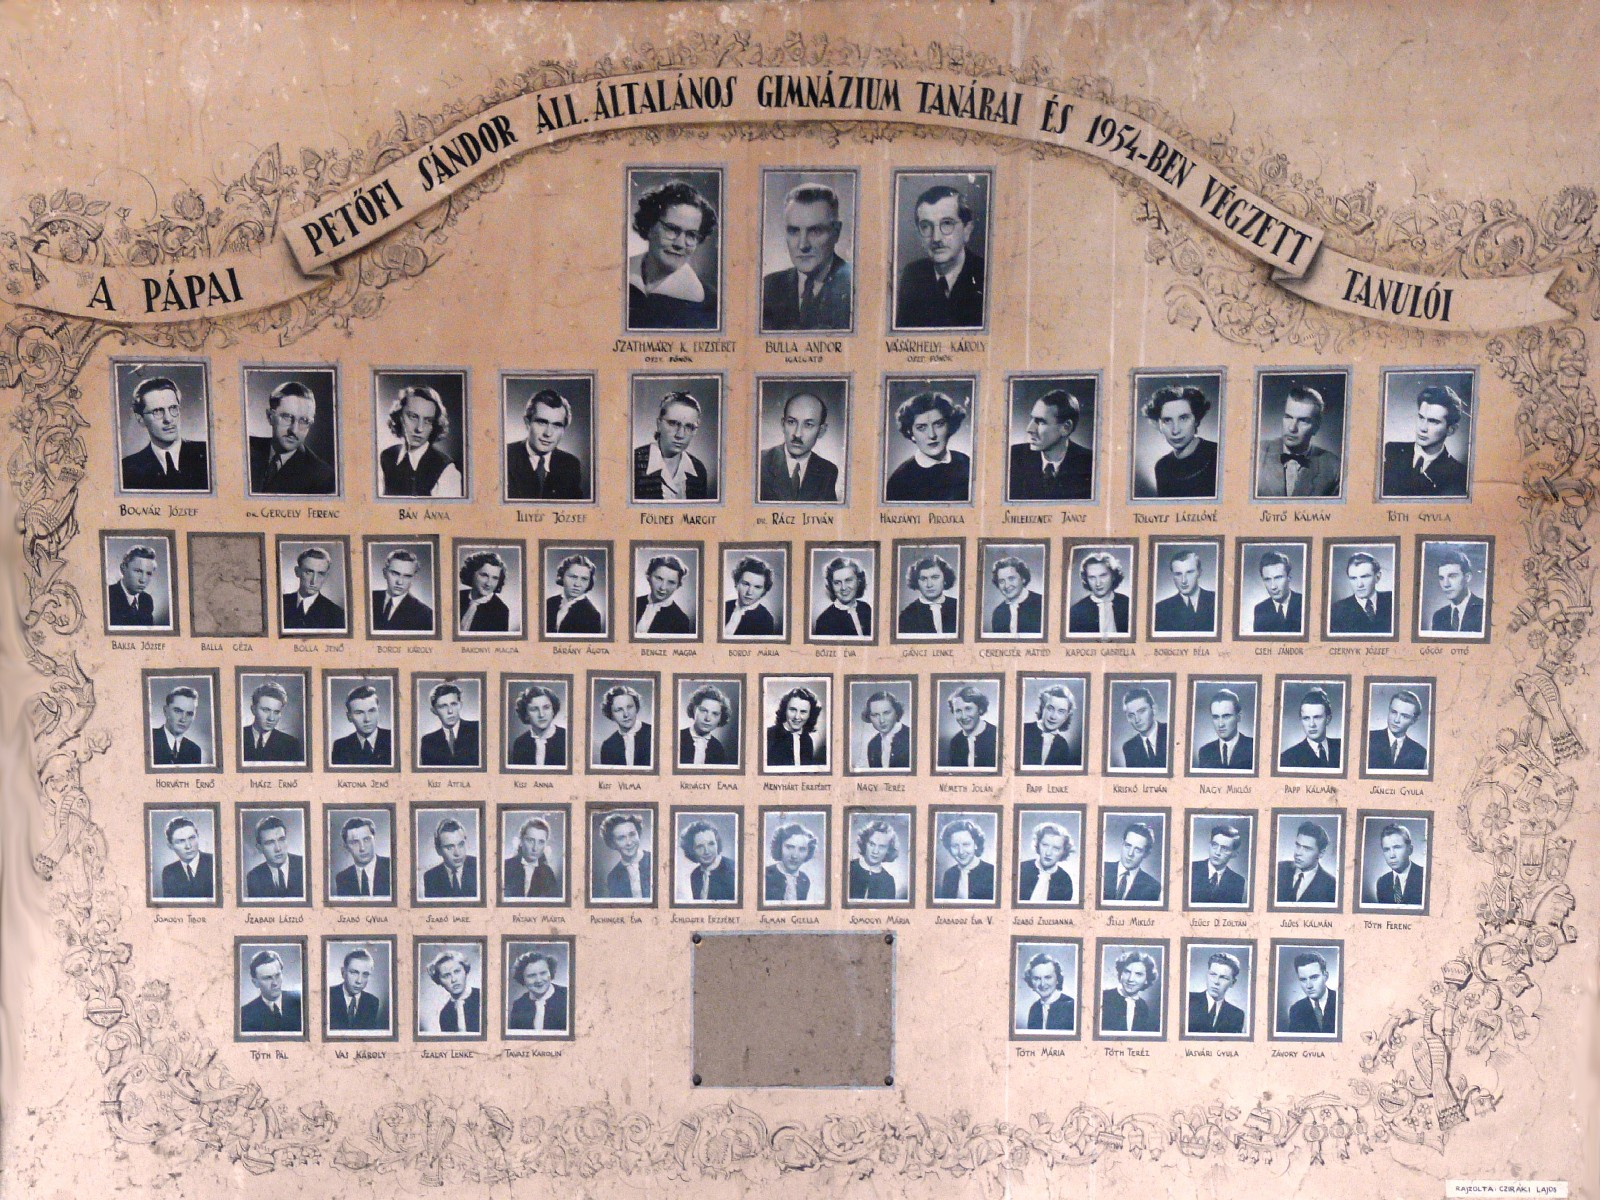 A PÁPAI PETŐFI SÁNDOR ÁLL. ÁLTALÁNOS GIMNÁZIUM TANÁRAI ÉS 1954-BEN VÉGZETT TANULÓI
SZATHMÁRY K. ERZSÉBET BULLA ANDOR VÁSÁRHELYI KÁROLY
OSZT. FŐNÖK IGAZGATÓ OSZT. FŐNÖK
BOGNÁR JÓZSEF DR. GERGELY FERENC BÁN ANNA ILLYÉS JÓZSEF FÖLDES MARGIT DR. RÁCZ ISTVÁN HARSÁNYI PIROSKA SCHLEISZNER JÁNOS TÖLGYES LÁSZLÓNÉ SÜTTŐ KÁLMÁN TÓTH GYULA
BAKSA JÓZSEF BALLA GÉZA BOLLA JENŐ BOROS KÁROLY BAKONYI MAGDA BÁRÁNY ÁGOTA BENCZE MAGDA BOROS MÁRIA BŐSZE ÉVA GÁNCZ LENKE GERENCSÉR MÁTYÁS KAPOCSI GABRIELLA BOROCZKY BÉLA CSEH SÁNDOR CSERNYK JÓZSEF GŐGÖS OTTÓ
HORVÁTH ERNŐ IHÁSZ ERNŐ KATONA JENŐ KISS ATTILA KISS ANNA KISS VILMA KRIVÁCSY EMMA MENYHÁRT ERZSÉBET NAGY TERÉZ NÉMETH JOLÁN PAPP LENKE KRISKÓ ISTVÁN NAGY MIKLÓS PAPP KÁLMÁN SÁNCZI GYULA
SOMOGYI TIBOR SZABADI LÁSZLÓ SZABÓ GYULA SZABÓ IMRE PATAKY MÁRTA PUCHINGER ÉVA SCHLOSSER ERZSÉBET SILMAN GIZELLA SOMOGYI MÁRIA SZABADOS ÉVA V. SZABÓ ZSUZSANNA SZIJJ MIKLÓS SZŰCS D. ZOLTÁN SZŰCS KÁLMÁN TÓTH FERENC
TÓTH PÁL VAS KÁROLY SZALAY LENKE TAVASZ KAROLIN TÓTH MÁRIA TÓTH TERÉZ VASVÁRI GYULA ZÁVORY GYULA
RAJZOLTA: CZIRÁKI LAJOS